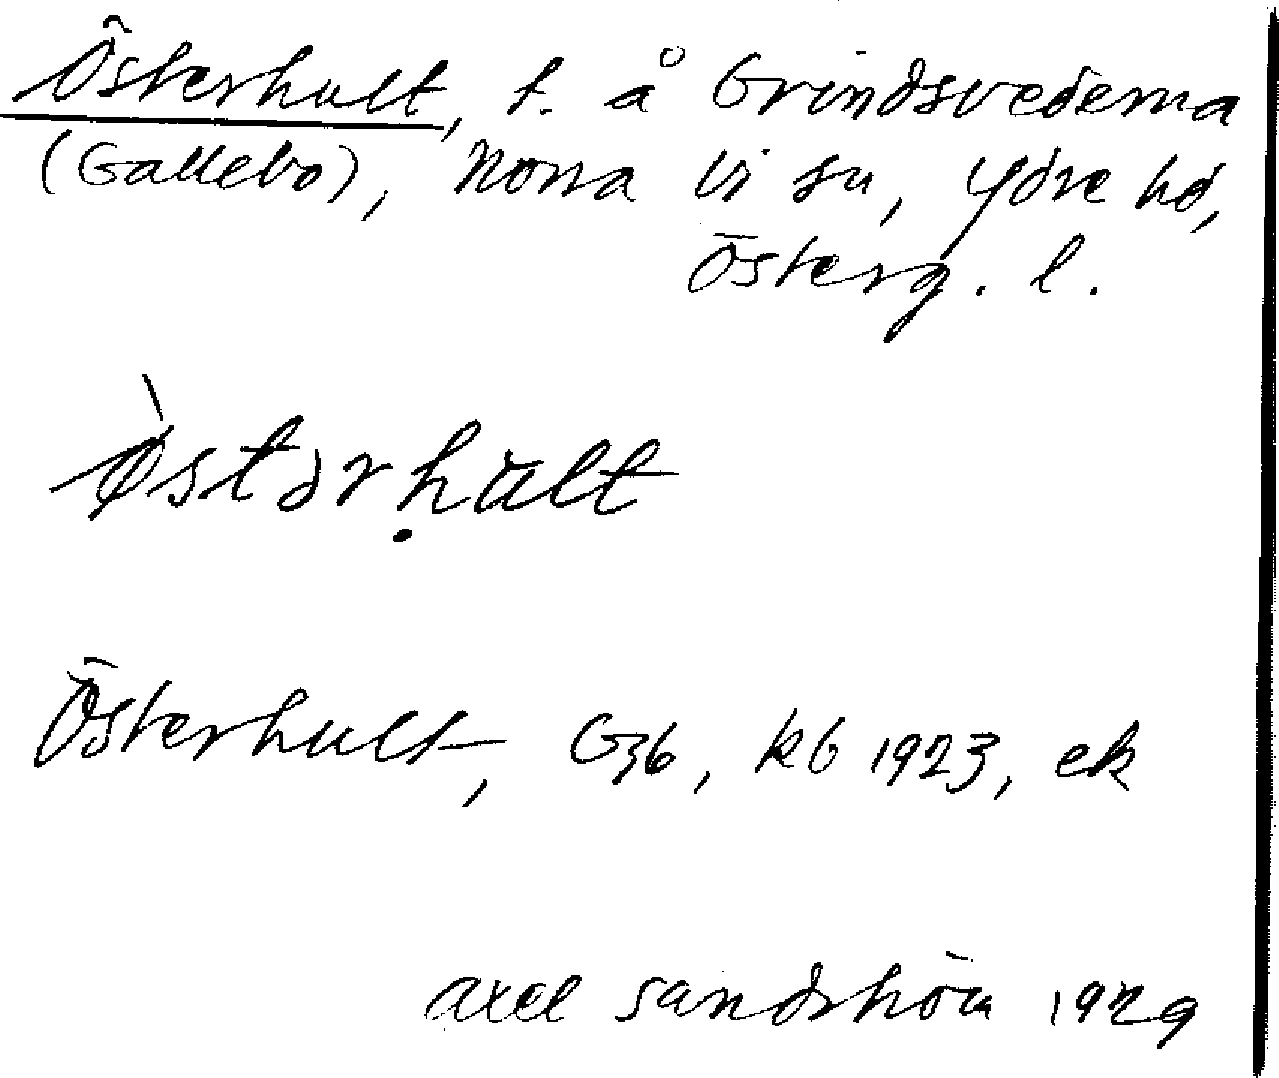 Österhult, t. å Grindsvederna
(Gallebo), Norra Vi sn, Ydre hd,
Österg. l.
ø̀stərḥult
Österhult, G36, kb 1923, ek
Axel Sandström 1929